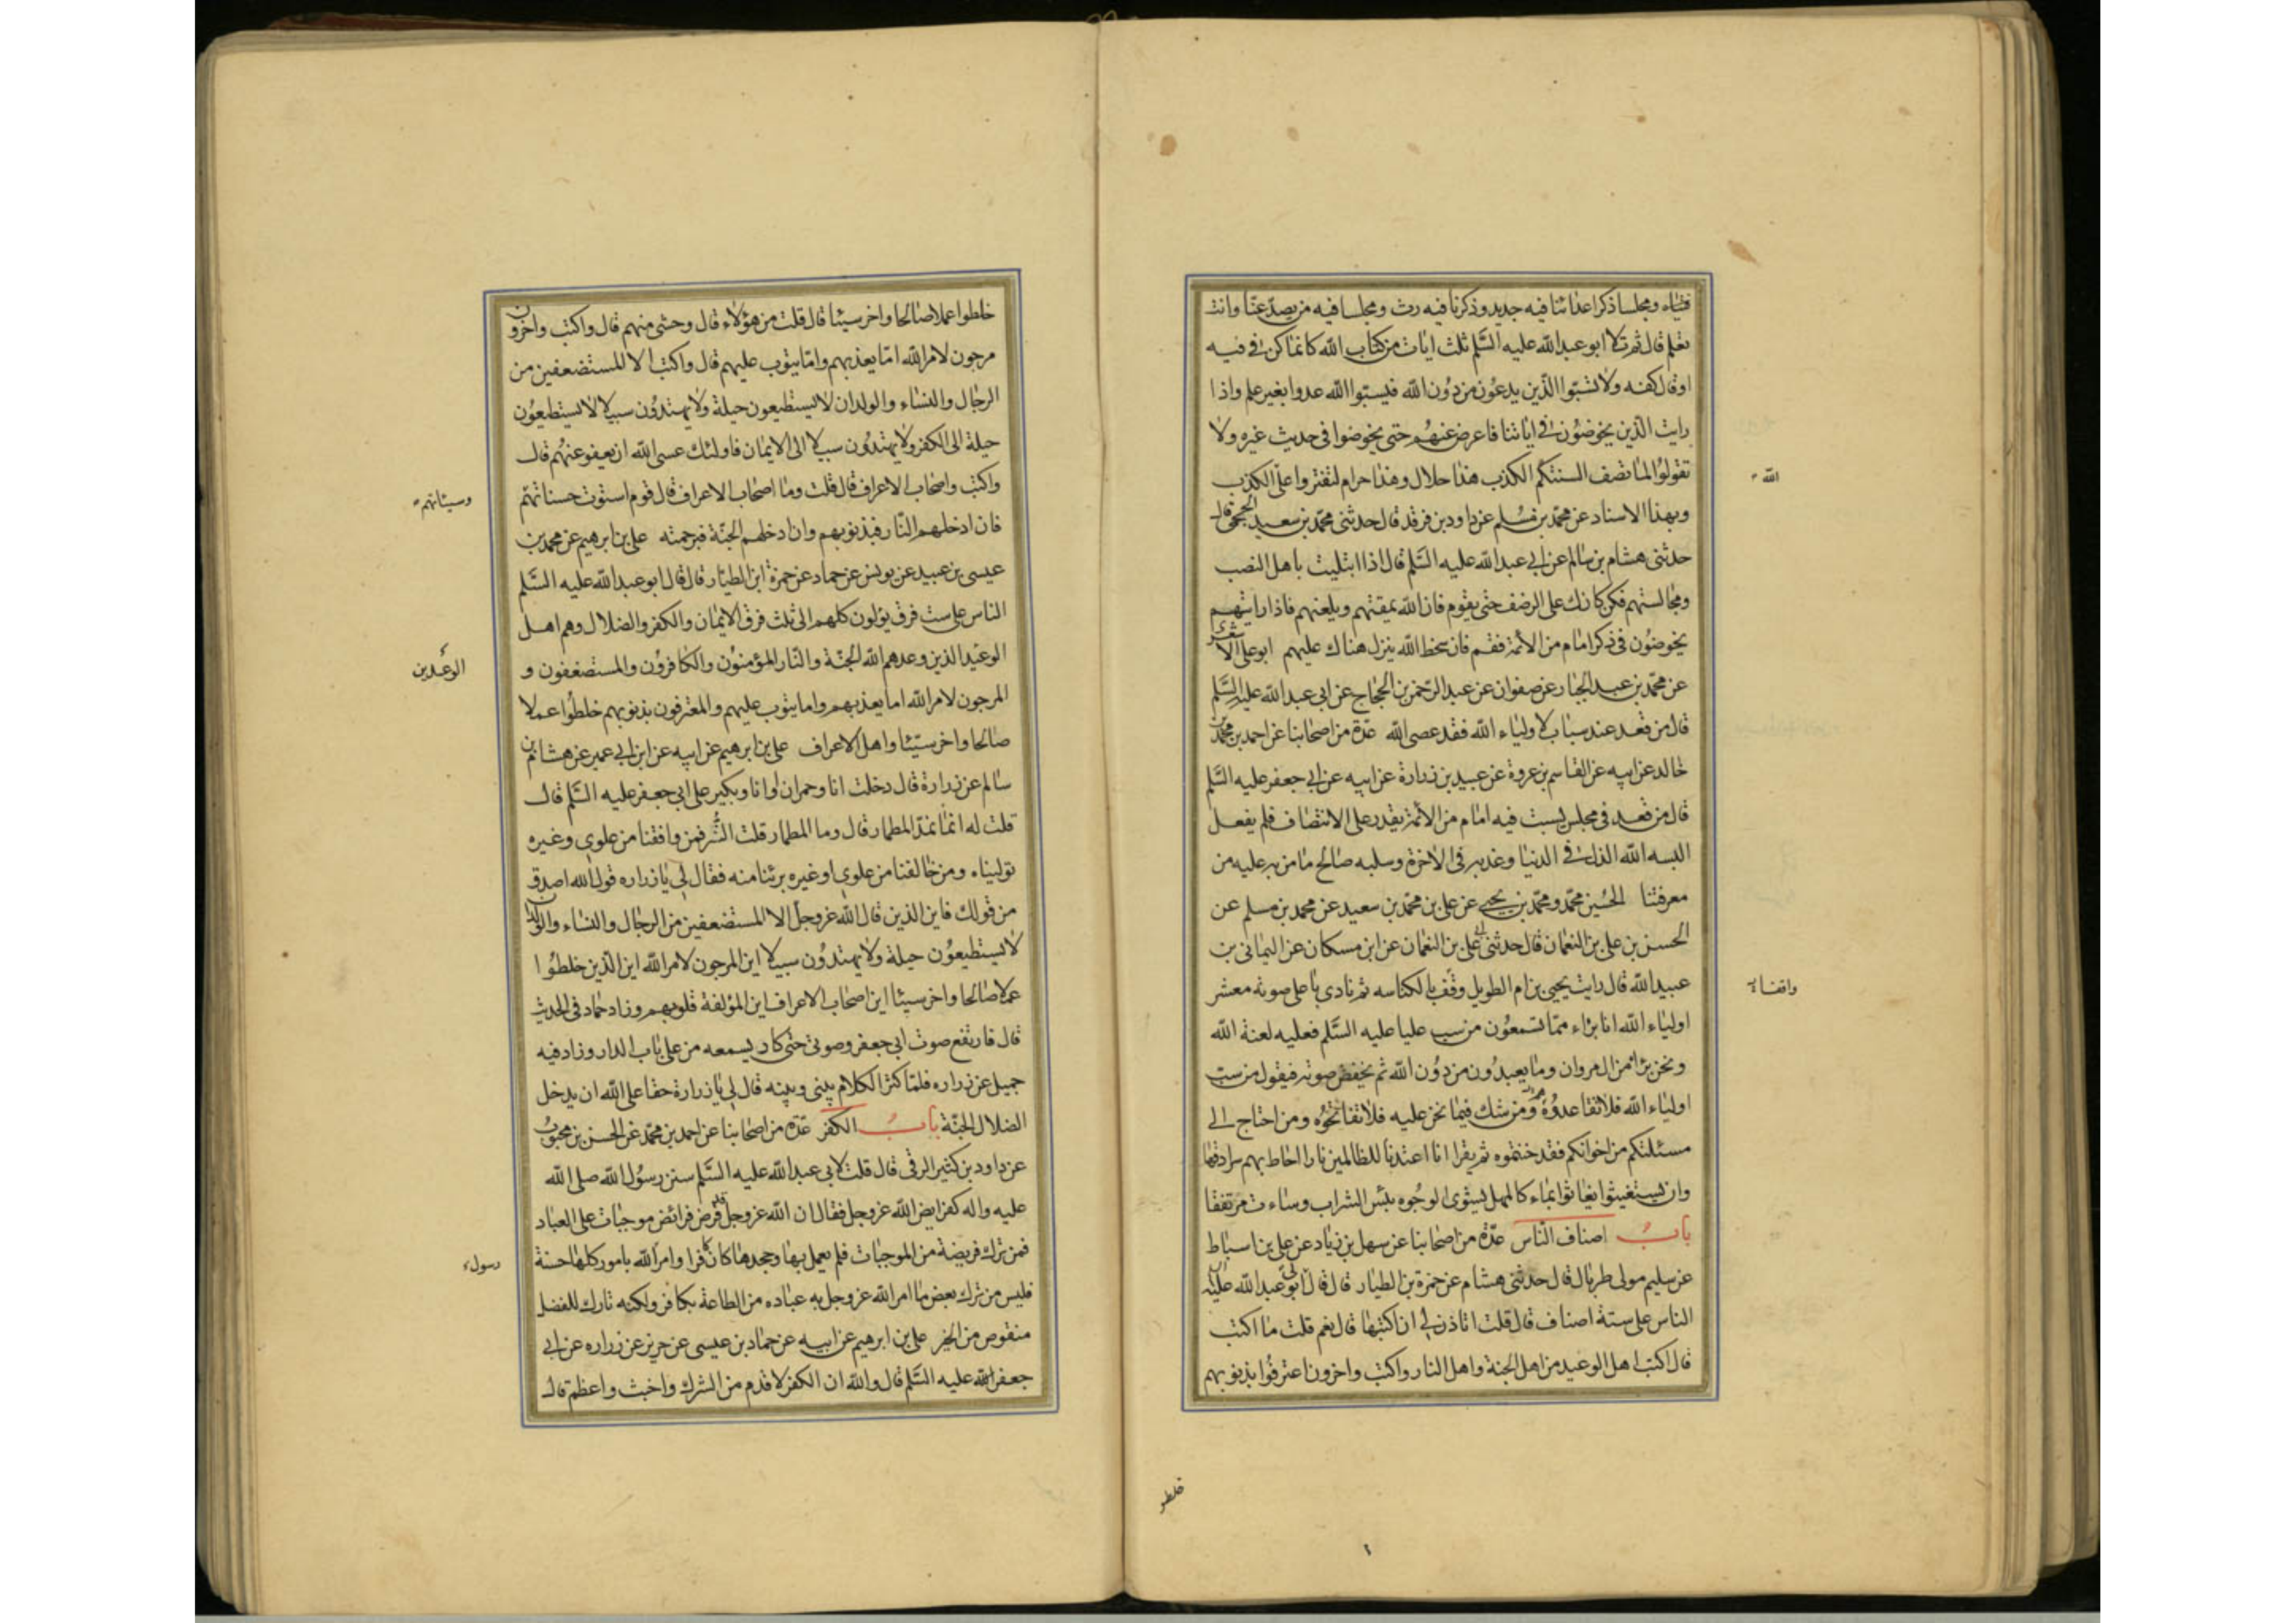 فتياه ومجلسا ذكر اعدائنا فيه جديد وذكرنا فيه رث ومجلسا فيه من يصد عنا وانت
تعلم قال ثم تلا ابو عبد الله عليه السلم ثلث ايات من كتاب الله كانما كن في فيه
او قال كفه ولا تسبوا الذين يدعون من دون الله فيسبوا الله عدوا بغير علم واذا
رايت الذين يخوضون في اياتنا فاعرض عنهم حتى يخوضوا في حديث غيره ولا
تقولوا لما تصف السنتكم الكذب هذا حلال وهذا حرام لتفتروا على الكذب
الله
وبهذا الاسناد عن محمد بن مسلم عن داود بن فرقد قال حدثني محمد بن سعيد الجمحي قال
حدثني هشام بن سالم عن ابي عبد الله عليه السلم قال اذا ابتليت باهل النصب
ومجالستهم فكن كانك على الرضف حتى يقوم فان الله يمقتهم ويلعنهم فاذا رايتهم
يخوضون في ذكر امام من الائمة فقم فان سخط الله ينزل هناك عليهم ابو علي الاشعري
عن محمد بن عبد الجبار عن صفوان عن عبد الرحمن بن الحجاج عن ابي عبد الله عليه السلم
قال من قعد عند سباب لاولياء الله فقد عصى الله عدة من اصحابنا عن احمد بن محمد بن
خالد عن ابيه عن القاسم بن عروة عن عبيد بن زرارة عن ابيه عن ابي جعفر عليه السلم
قال من قعد في مجلس يسب فيه امام من الائمة يقدر على الانتصاف فلم يفعل
البسه الله الذل في الدنيا وعذبه في الاخرة وسلبه صالح ما من به عليه من
معرفتنا الحسين محمد ومحمد بن يحيى عن علي بن محمد بن سعيد عن محمد بن مسلم عن
الحسن بن علي بن النعمان قال حدثني ابي علي بن النعمان عن ابن مسكان عن اليماني بن
عبيد الله قال رايت يحيى بن ام الطويل وقف بالكناسه ثم نادى باعلى صوته معشر
واقفا
اولياء الله انا براء مما تسمعون من سب عليا عليه السلم فعليه لعنة الله
ونحن براء من ال مروان وما يعبدون من دون الله ثم يخفض صوته فيقول من سب
اولياء الله فلا تقاعدوه ومن شك فيما نحن عليه فلا تفاتحوه ومن احتاج الى
مسئلتكم من اخوانكم فقد خنتموه ثم يقرا انا اعتدنا للظالمين نارا احاط بهم سرادقها
وان يستغيثوا يغاثوا بماء كالمهل يشوى الوجوه بئس الشراب وساءت مرتفقا
باب اصناف الناس عدة من اصحابنا عن سهل بن زياد عن علي بن اسباط
عن سليم مولى طربال قال حدثني هشام عن حمزة بن الطيار قال قال لي ابو عبد الله عليه
الناس على ستة اصناف قال قلت اتاذن لي ان اكتبها قال نعم قلت ما اكتب
قال اكتب اهل الوعيد من اهل الجنة واهل النار واكتب واخرون اعترفوا بذنوبهم
خلطوا عملا صالحا واخر سيئا قال قلت من هؤلاء قال وحشي منهم قال واكتب واخرون
مرجون لامر الله اما يعذبهم واما يتوب عليهم قال واكتب الا المستضعفين من
الرجال والنساء والولدان لا يستطيعون حيلة ولا يهتدون سبيلا لا يستطيعون
حيلة الى الكفر ولا يهتدون سبيلا الى الايمان فاولئك عسى الله ان يعفو عنهم قال
واكتب واصحاب الاعراف قال قلت وما اصحاب الاعراف قال قوم استوت حسناتهم
وسيئاتهم
فان ادخلهم النار فبذنوبهم وان ادخلهم الجنة فبرحمته علي بن ابرهيم عن محمد بن
عيسى بن عبيد عن يونس عن حماد عن حمزة ابن الطيار قال قال ابو عبد الله عليه السلم
الناس على ست فرق يؤلون كلهم الى ثلث فرق الايمان والكفر والضلال وهم اهل
الوعيد الذين وعدهم الله الجنة والنار المؤمنون والكافرون والمستضعفون و
الوعدين
المرجون لامر الله اما يعذبهم واما يتوب عليهم والمعترفون بذنوبهم خلطوا عملا
صالحا واخر سيئا واهل الاعراف علي بن ابرهيم عن ابيه عن ابن ابي عمير عن هشام بن
سالم عن زرارة قال دخلت انا وحمران او انا وبكير على ابي جعفر عليه السلم قال
قلت له انما نمد المطمار قال وما المطمار قلت التر فمن وافقنا من علوي وغيره
توليناه ومن خالفنا من علوي او غيره برئنا منه فقال لي يا زراره قول الله اصدق
من قولك فاين الذين قال الله عز وجل الا المستضعفين من الرجال والنساء والولدان
لا يستطيعون حيلة ولا يهتدون سبيلا اين المرجون لامر الله اين الذين خلطوا
عملا صالحا واخر سيئا اين اصحاب الاعراف اين المؤلفة قلوبهم وزاد حماد في الحديث
قال فارتفع صوت ابي جعفر وصوتي حتى كاد يسمعه من على باب الدار وزاد فيه
جميل عن زراره فلما كثر الكلام بيني وبينه قال لي يا زرارة حقا على الله ان يدخل
الضلال الجنة باب الكفر عدة من اصحابنا عن احمد بن محمد عن الحسن بن محبوب
عن داود بن كثير الرقي قال قلت لابي عبد الله عليه السلم سنن رسول الله صلى الله
عليه واله كفرايض الله عز وجل فقال ان الله عز وجل فرض فرائض موجبات على العباد
فمن ترك فريضة من الموجبات فلم يعمل بها وجحدها كان كافرا وامر الله بامور كلها حسنة
رسول
فليس من ترك بعض ما امر الله عز وجل به عباده من الطاعة بكافر ولكنه تارك للفضل
منقوص من الخير علي بن ابرهيم عن ابيه عن حماد بن عيسى عن حريز عن زراره عن ابي
جعفر عليه السلم قال والله ان الكفر لاقدم من الشرك واخبث واعظم قال